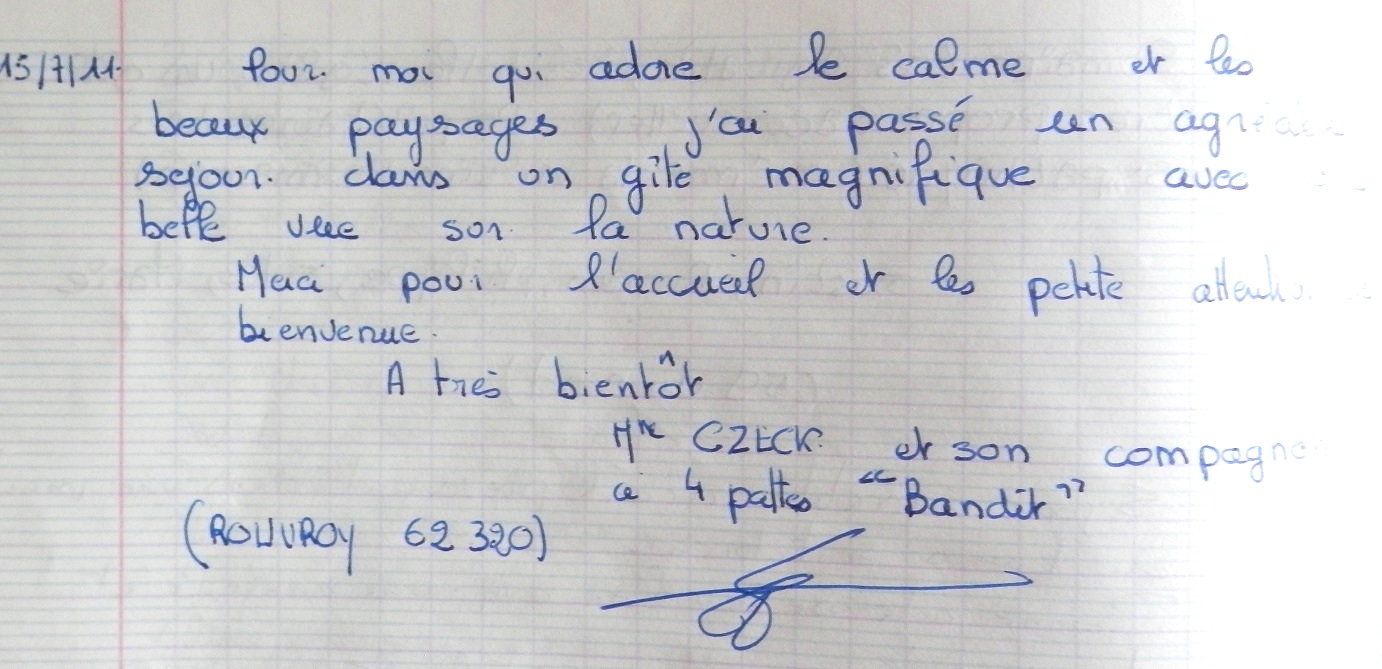 15/7/11. Pour moi qui adore le calme et les
beaux paysages j'ai passé un
sejour dans un gîte magnifique avec
belle vue sur la nature.
Merci pour l'accueil et les petite
bienvenue.
A très bientôt
Mme CZECK. et son
a 4 pattes "Bandit"
(ROUVROY 62 320)